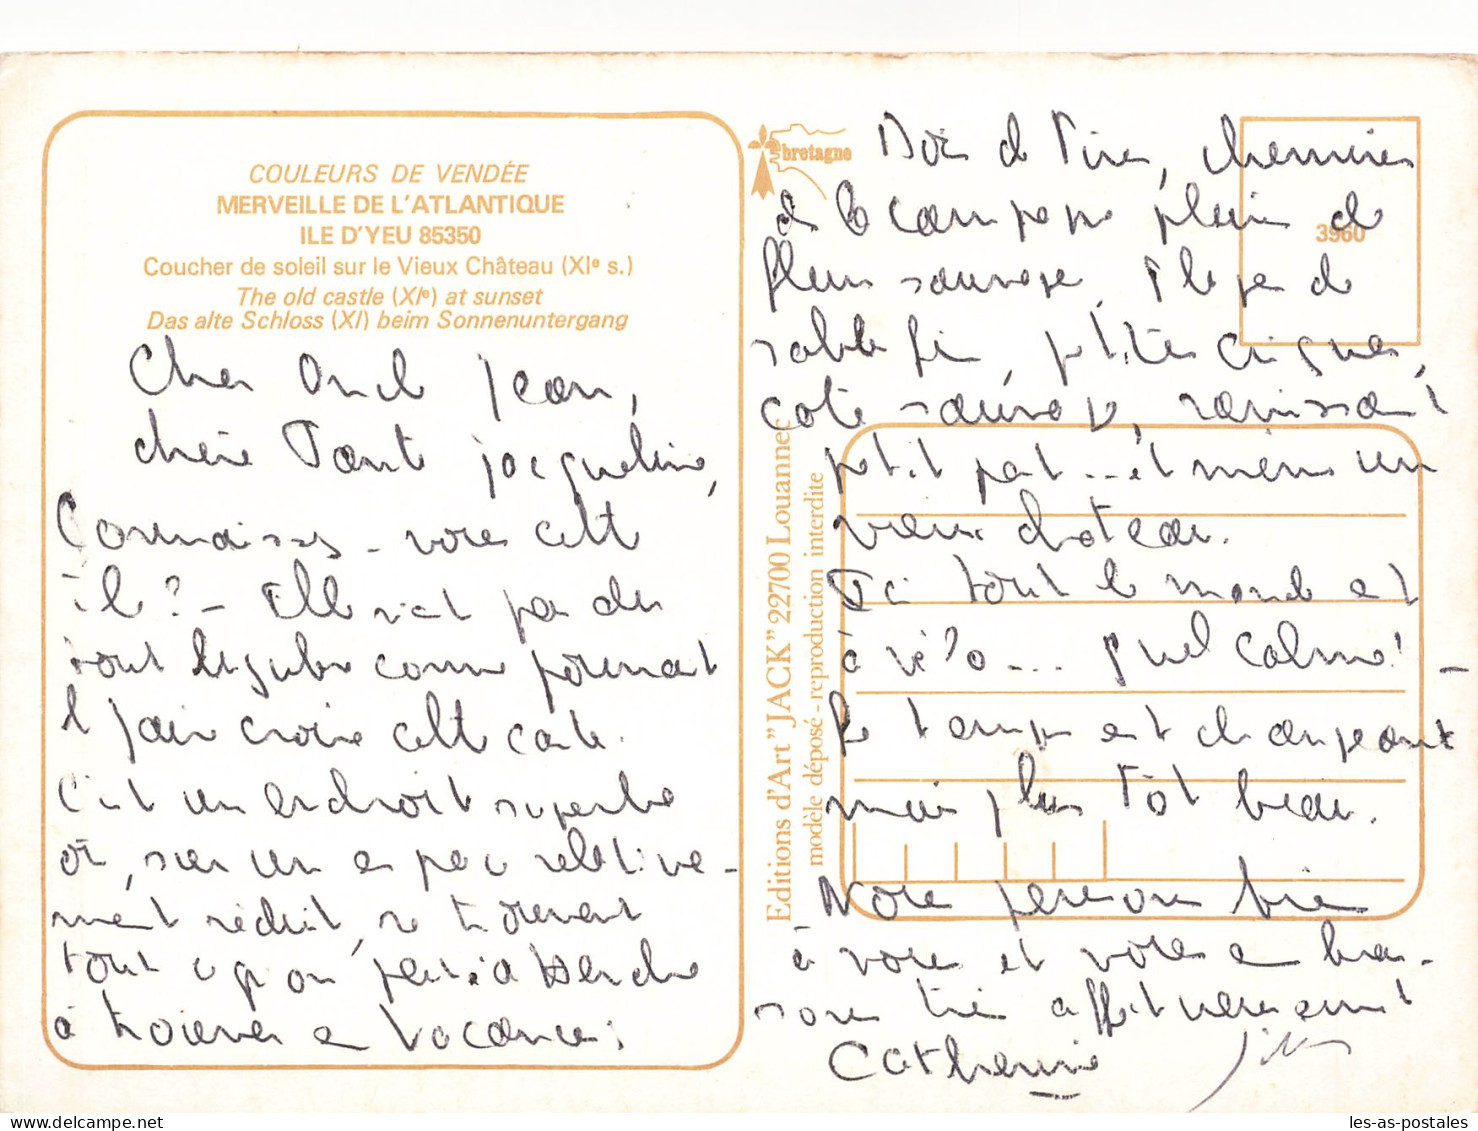 COULEURS DE VENDÉE
MERVEILLE DE L'ATLANTIQUE
ILE D'YEU 85350
Coucher de soleil sur le Vieux Château (XIe s.)
The old castle (XIe) at sunset
Das alte Schloss (XI) beim Sonnenuntergang
Cher Oncle Jean,
chère Tante Jacqueline,
Connaissez-vous cette
île ? - Elle n'est pas du
tout lugubre comme pourrait
le faire croire cette carte.
C'est un endroit superbe
où, sur un espace relative-
ment réduit, se trouvent
tout ce qu'on peut s'attendre
à trouver en vacances :
bretagne
3960
Bois de Pins, chemins
de la campagne plein de
fleurs sauvages, Plages de
sable fin, petites criques,
côte sauvage, ravissant
petit port... et même un
vieux château.
Ici tout le monde est
à vélo... Quel calme ! -
Le temps est changeant
mais plus tôt beau.
Nous pensons bien
à vous et vous em bras-
sons très affectueusement
Catherine
Editions d'Art "JACK" 22700 Louannec
modèle déposé - reproduction interdite
les-as-postales